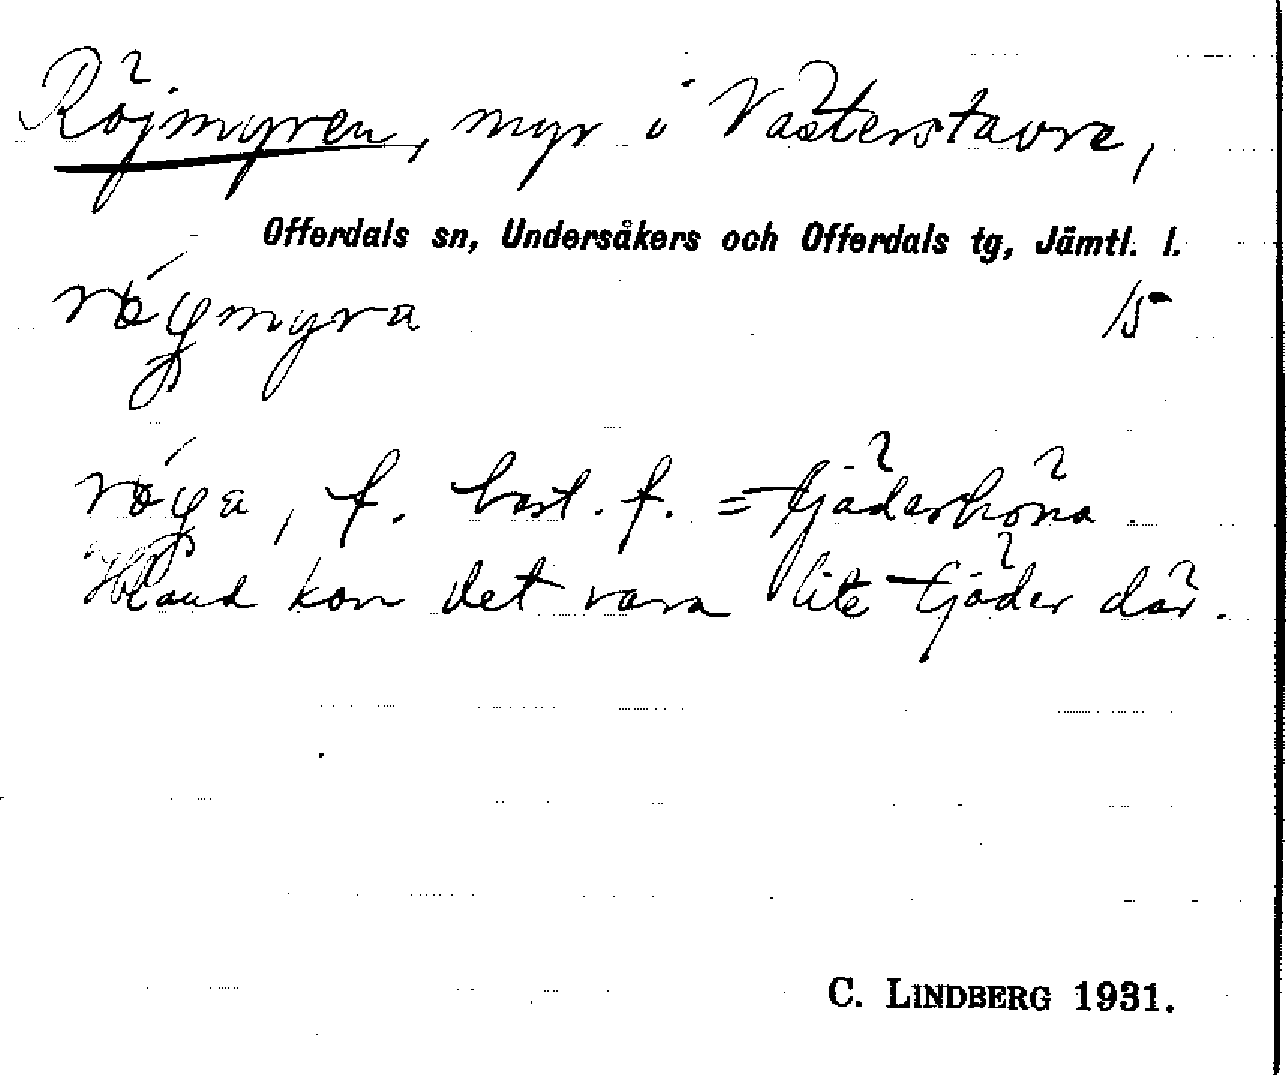 Röjmyren, myr i Västerstavre,
Offerdals sn, Undersåkers och Offerdals tg, Jämtl. l.
röɟmyra 15
röɟa, f. best. f. = tjäderhöna.
Ibland kan det vara lite tjäder där.
C. LINDBERG 1931.